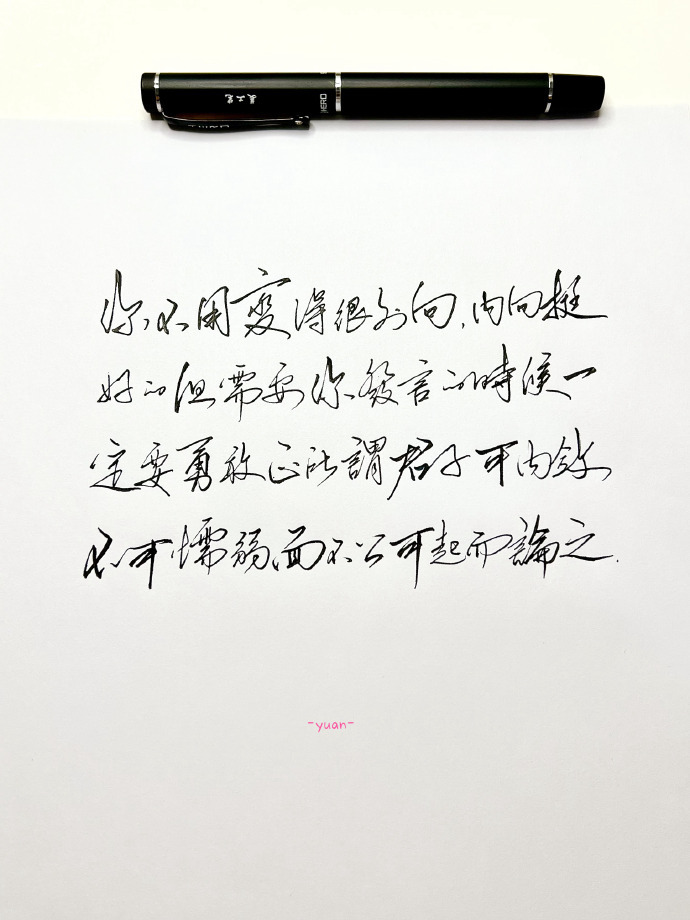 美工笔
HERO
你不用變得很外向,内向挺
好的但需要你發言的時候一
定要勇敢正所謂君子可内敛
不可懦弱,面不公可起而論之.
-yuan-